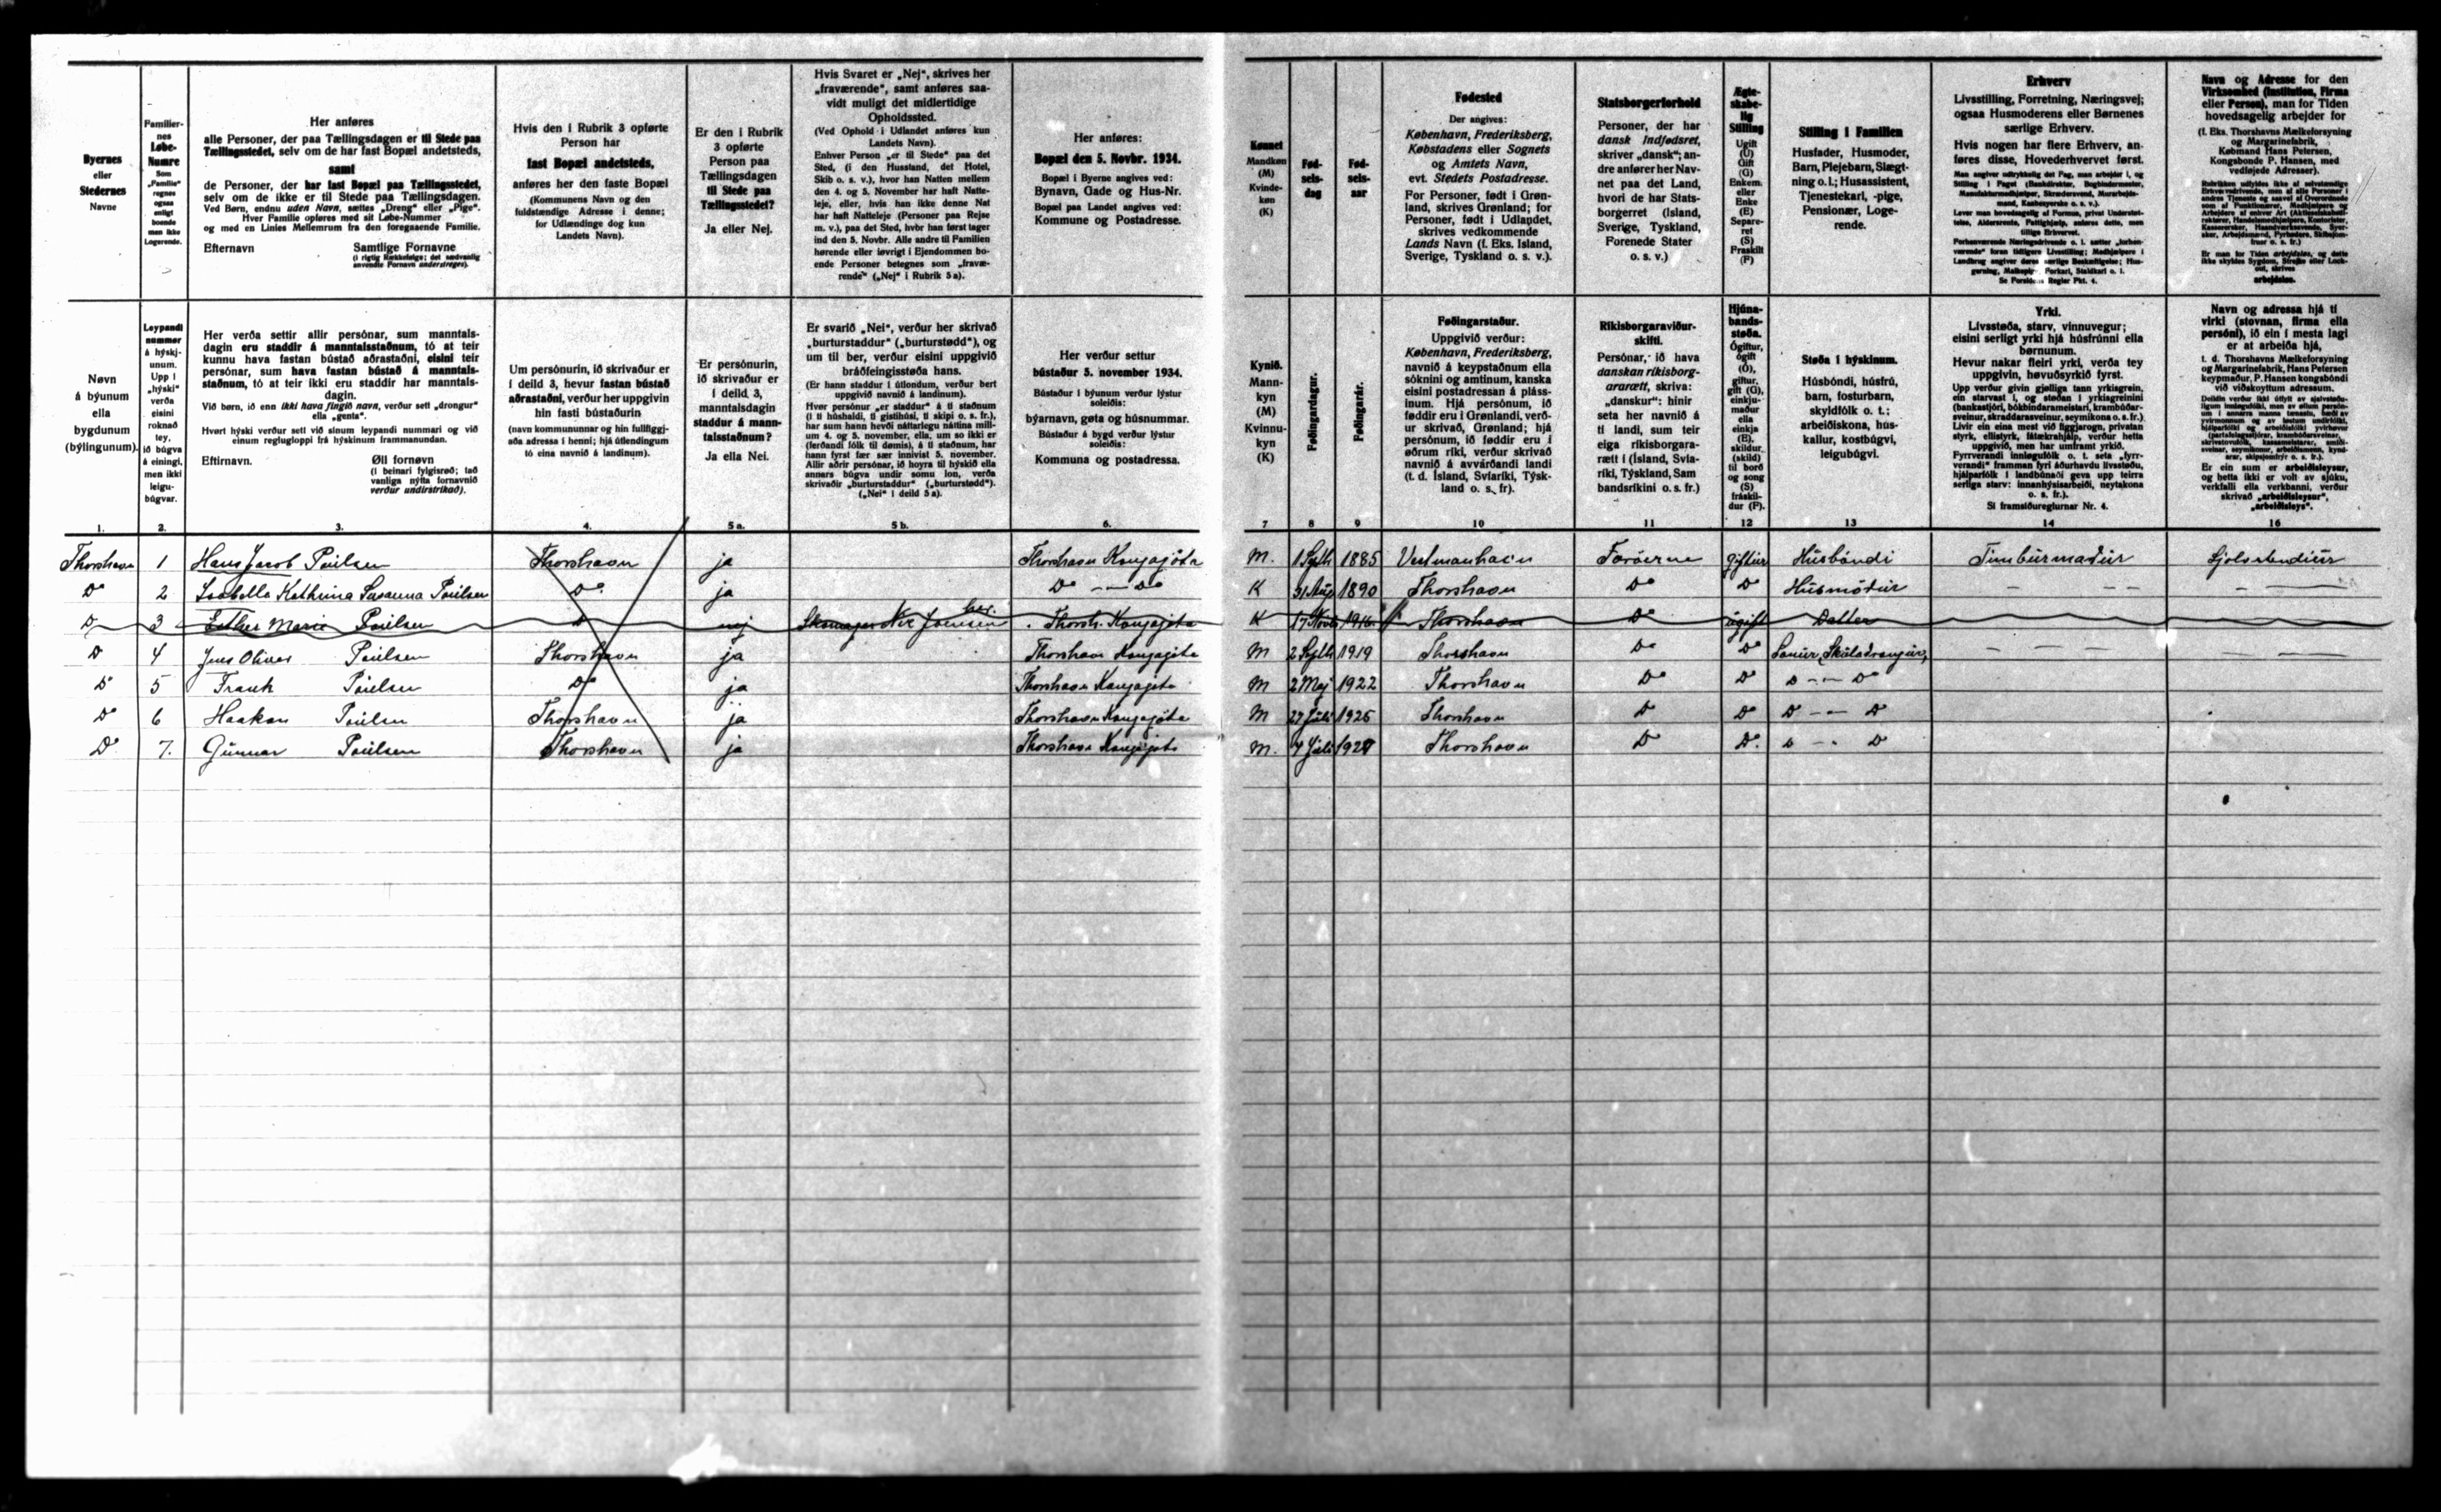 Byernes
eller
Stedernes
Navne
Familier-
nes
Løbe-
Numre
Som
„Familie"
regnes
ogsaa
enligt
boende
men ikke
Logerende.
Her anføres
alle Personer, der paa Tællingsdagen er til Stede paa
Tællingsstedet, selv om de har fast Bopæl andetsteds,
samt
de Personer, der har fast Bopæl paa Tællingsstedet,
selv om de ikke er til Stede paa Tællingsdagen.
Ved Børn, endnu uden Navn, sættes „Dreng" eller „Pige".
Hver Familie opføres med sit Løbe-Nummer
og med en Linies Mellemrum fra den foregaaende Familie.
Efternavn Samtlige Fornavne
(i rigtig Rækkefølge; det sædvanlig
anvendte Fornavn understreges).
Hvis den i Rubrik 3 opførte
Person har
fast Bopæl andetsteds,
anføres her den faste Bopæl
(Kommunens Navn og den
fuldstændige Adresse i denne;
for Udlændinge dog kun
Landets Navn).
Er den i Rubrik
3 opførte
Person paa
Tællingsdagen
til Stede paa
Tællingsstedet?
Ja eller Nej.
Hvis Svaret er „Nej", skrives her
„fraværende", samt anføres saa-
vidt muligt det midlertidige
Opholdssted.
(Ved Ophold i Udlandet anføres kun
Landets Navn).
Enhver Person „er til Stede" paa det
Sted, (i den Husstand, det Hotel,
Skib o. s. v.), hvor han Natten mellem
den 4. og 5. November har haft Natte-
leje, eller, hvis han ikke denne Nat
har haft Natteleje (Personer paa Rejse
m. v.), paa det Sted, hvor han først tager
ind den 5. Novbr. Alle andre til Familien
hørende eller iøvrigt i Ejendommen bo-
ende Personer betegnes som „fravæ-
rende" („Nej" i Rubrik 5a).
Her anføres:
Bopæl den 5. Novbr. 1934.
Bopæl i Byerne angives ved:
Bynavn, Gade og Hus-Nr.
Bopæl paa Landet angives ved:
Kommune og Postadresse.
Kønnet
Mandkøn
(M)
Kvinde-
køn
(K)
Fød-
sels-
dag
Fød-
sels-
aar
Fødested
Der angives:
København, Frederiksberg,
Købstadens eller Sognets
og Amtets Navn,
evt. Stedets Postadresse.
For Personer, født i Grøn-
land, skrives Grønland; for
Personer, født i Udlandet,
skrives vedkommende
Lands Navn (f. Eks. Island,
Sverige, Tyskland o. s. v.).
Statsborgerforhold
Personer, der har
dansk Indfødsret,
skriver „dansk"; an-
dre anfører her Nav-
net paa det Land,
hvori de har Stats-
borgerret (Island,
Sverige, Tyskland,
Forenede Stater
o. s. v.)
Ægte-
skabe-
lig
Stilling
Ugift
(U)
Gift
(G)
Enkem.
eller
Enke
(E)
Separe-
ret
(S)
Fraskilt
(F)
Stilling i Familien
Husfader, Husmoder,
Barn, Plejebarn, Slægt-
ning o. l.; Husassistent,
Tjenestekarl, -pige,
Pensionær, Loge-
rende.
Erhverv
Livsstilling, Forretning, Næringsvej;
ogsaa Husmoderens eller Børnenes
særlige Erhverv.
Hvis nogen har flere Erhverv, an-
føres disse, Hovederhvervet først.
Se Forsidens Regler Pkt. 4.
Navn og Adresse for den
Virksomhed (Institution, Firma
eller Person), man for Tiden
hovedsagelig arbejder for
(f. Eks. Thorshavns Mælkeforsyning
og Margarinefabrik,
Købmand Hans Petersen,
Kongsbonde P. Hansen, med
vedføjede Adresser).
Er man for Tiden arbejdsløs, og dette
ikke skyldes Sygdom, Strejke eller Lock-
out, skrives
arbejdsløs.
Nøvn
á býunum
ella
bygdunum
(býlingunum).
Leypandi
nummer
á hýskj-
unum.
Upp í
„hýski"
verða
eisini
roknað
tey,
ið búgva
á einingi,
men ikki
leigu-
búgvar.
Her verða settir allir persónar, sum manntals-
dagin eru staddir á manntalsstaðnum, tó at teir
kunnu hava fastan bústað aðrastaðni, eisini teir
persónar, sum hava fastan bústað á manntals-
staðnum, tó at teir ikki eru staddir har manntals-
dagin.
Við børn, ið enn ikki hava fingið navn, verður sett „drongur"
ella „genta".
Hvørt hýski verður sett við sínum leypandi nummari og við
einum reglugloppi frá hýskinum frammanundan.
Eftirnavn. Øll fornøvn
(í beinari fylgisrøð; tað
vanliga nýtta fornavnið
verður undirstrikað).
Um persónurin, ið skrivaður er
í deild 3, hevur fastan bústað
aðrastaðni, verður her uppgivin
hin fasti bústaðurin
(navn kommununnar og hin fullfíggj-
aða adressa í henni; hjá útlendingum
tó eina navnið á landinum).
Er persónurin,
ið skrivaður er
í deild 3,
manntalsdagin
staddur á mann-
talsstaðnum?
Ja ella Nei.
Er svarið „Nei", verður her skrivað
„burturstaddur" („burturstødd"), og
um til ber, verður eisini uppgivið
bráðfeingisstøða hans.
(Er hann staddur í útlondum, verður bert
uppgivið navnið á landinum).
Hvør persónur „er staddur" á tí staðnum
(í tí húshaldi, tí gistihúsi, tí skipi o. s. fr.),
har sum hann hevði náttarlegu náttina mill-
um 4. og 5. november, ella, um so ikki er
(ferðandi fólk til dømis), á tí staðnum, har
hann fyrst fær sær innivist 5. november.
Allir aðrir persónar, ið hoyra til hýskið ella
annars búgva undir somu lon, verða
skrivaðir „burturstaddur" („burturstødd").
(„Nei" í deild 5a).
Her verður settur
bústaður 5. november 1934.
Bústaður í býunum verður lýstur
soleiðis:
býarnavn, gøta og húsnummar.
Bústaður á bygd verður lýstur
soleiðis:
Kommuna og postadressa.
Kynið.
Mann-
kyn
(M)
Kvinnu-
kyn
(K)
Føðingardagur.
Føðingarár.
Føðingarstaður.
Uppgivið verður:
København, Frederiksberg,
navnið á keypstaðnum ella
sóknini og amtinum, kanska
eisini postadressan á pláss-
inum. Hjá persónum, ið
føddir eru í Grønlandi, verð-
ur skrivað, Grønland; hjá
persónum, ið føddir eru í
øðrum ríki, verður skrivað
navnið á avvarðandi landi
(t. d. Ísland, Svíaríki, Týsk-
land o. s. fr).
Ríkisborgaraviður-
skifti.
Persónar, ið hava
danskan ríkisborg-
ararætt, skriva:
„danskur": hinir
seta her navnið á
tí landi, sum teir
eiga ríkisborgara-
rætt í (Ísland, Svía-
ríki, Týskland, Sam
bandsríkini o. s. fr.)
Hjúna-
bands-
støða.
Ógiftur,
ógift
(Ó),
giftur,
gift (G),
einkju-
maður
ella
einkja
(E),
skildur,
(skild)
til borð
og song
(S)
fráskil-
dur (F).
Støða í hýskinum.
Húsbóndi, húsfrú,
barn, fosturbarn,
skyldfólk o. t.;
arbeiðiskona, hús-
kallur, kostbúgvi,
leigubúgvi.
Yrki.
Livsstøða, starv, vinnuvegur;
eisini serligt yrki hjá húsfrúnni ella
børnunum.
Hevur nakar fleiri yrki, verða tey
uppgivin, høvuðsyrkið fyrst.
Sí framsíðureglurnar Nr. 4.
Navn og adressa hjá tí
virki (stovnan, firma ella
persóni), ið ein í mesta lagi
er at arbeiða hjá,
t. d. Thorshavns Mælkeforsyning
og Margarinefabrik, Hans Petersen
keypmaður, P. Hansen kongsbóndi
við viðskoyttum adressum.
Er ein sum er arbeiðisleysur,
og hetta ikki er volt av sjúku,
verkfalli ella verkbanni, verður
skrivað „arbeiðisleysur",
„arbeiðisleys".
1. 2. 3. 4. 5a. 5b. 6. 7 8 9 10 11 12 13 14 16
Thorshavn 1 Hans Jacob Poulsen Thorshavn ja Thorshavn Kongagöta M. 1 Septb 1885 Vestmanhavn Foroerne giftur Húsbóndi Timburmadur Sjolvstendiur
Do 2 Isabella Kathrina Susanna Poulsen Do ja Do -- Do K 31 Aug 1890 Thorshavn Do Do Húsmódur
Do 3 Esther Marie Poulsen Do nej Skomager Joensen her. Thorsh. Kongagöta K 17 Novb 1916 Thorshavn Do ugift Datter
Do 4 Jens Oliver Poulsen Thorshavn ja Thorshavn Kongagöta M 2 Septb 1919 Thorshavn Do Do Sonur, Skúladrongur,
Do 5 Frank Poulsen Do ja Thorshavn Kongagöta M 2 Maj 1922 Thorshavn Do Do Do -- Do
Do 6 Haakon Poulsen Thorshavn ja Thorshavn Kongagöta M 27 Juli 1925 Thorshavn Do Do Do -- Do
Do 7. Gunnar Poulsen Thorshavn ja Thorshavn Kongagöta M. 4 Juli 1927 Thorshavn Do Do. Do -- Do